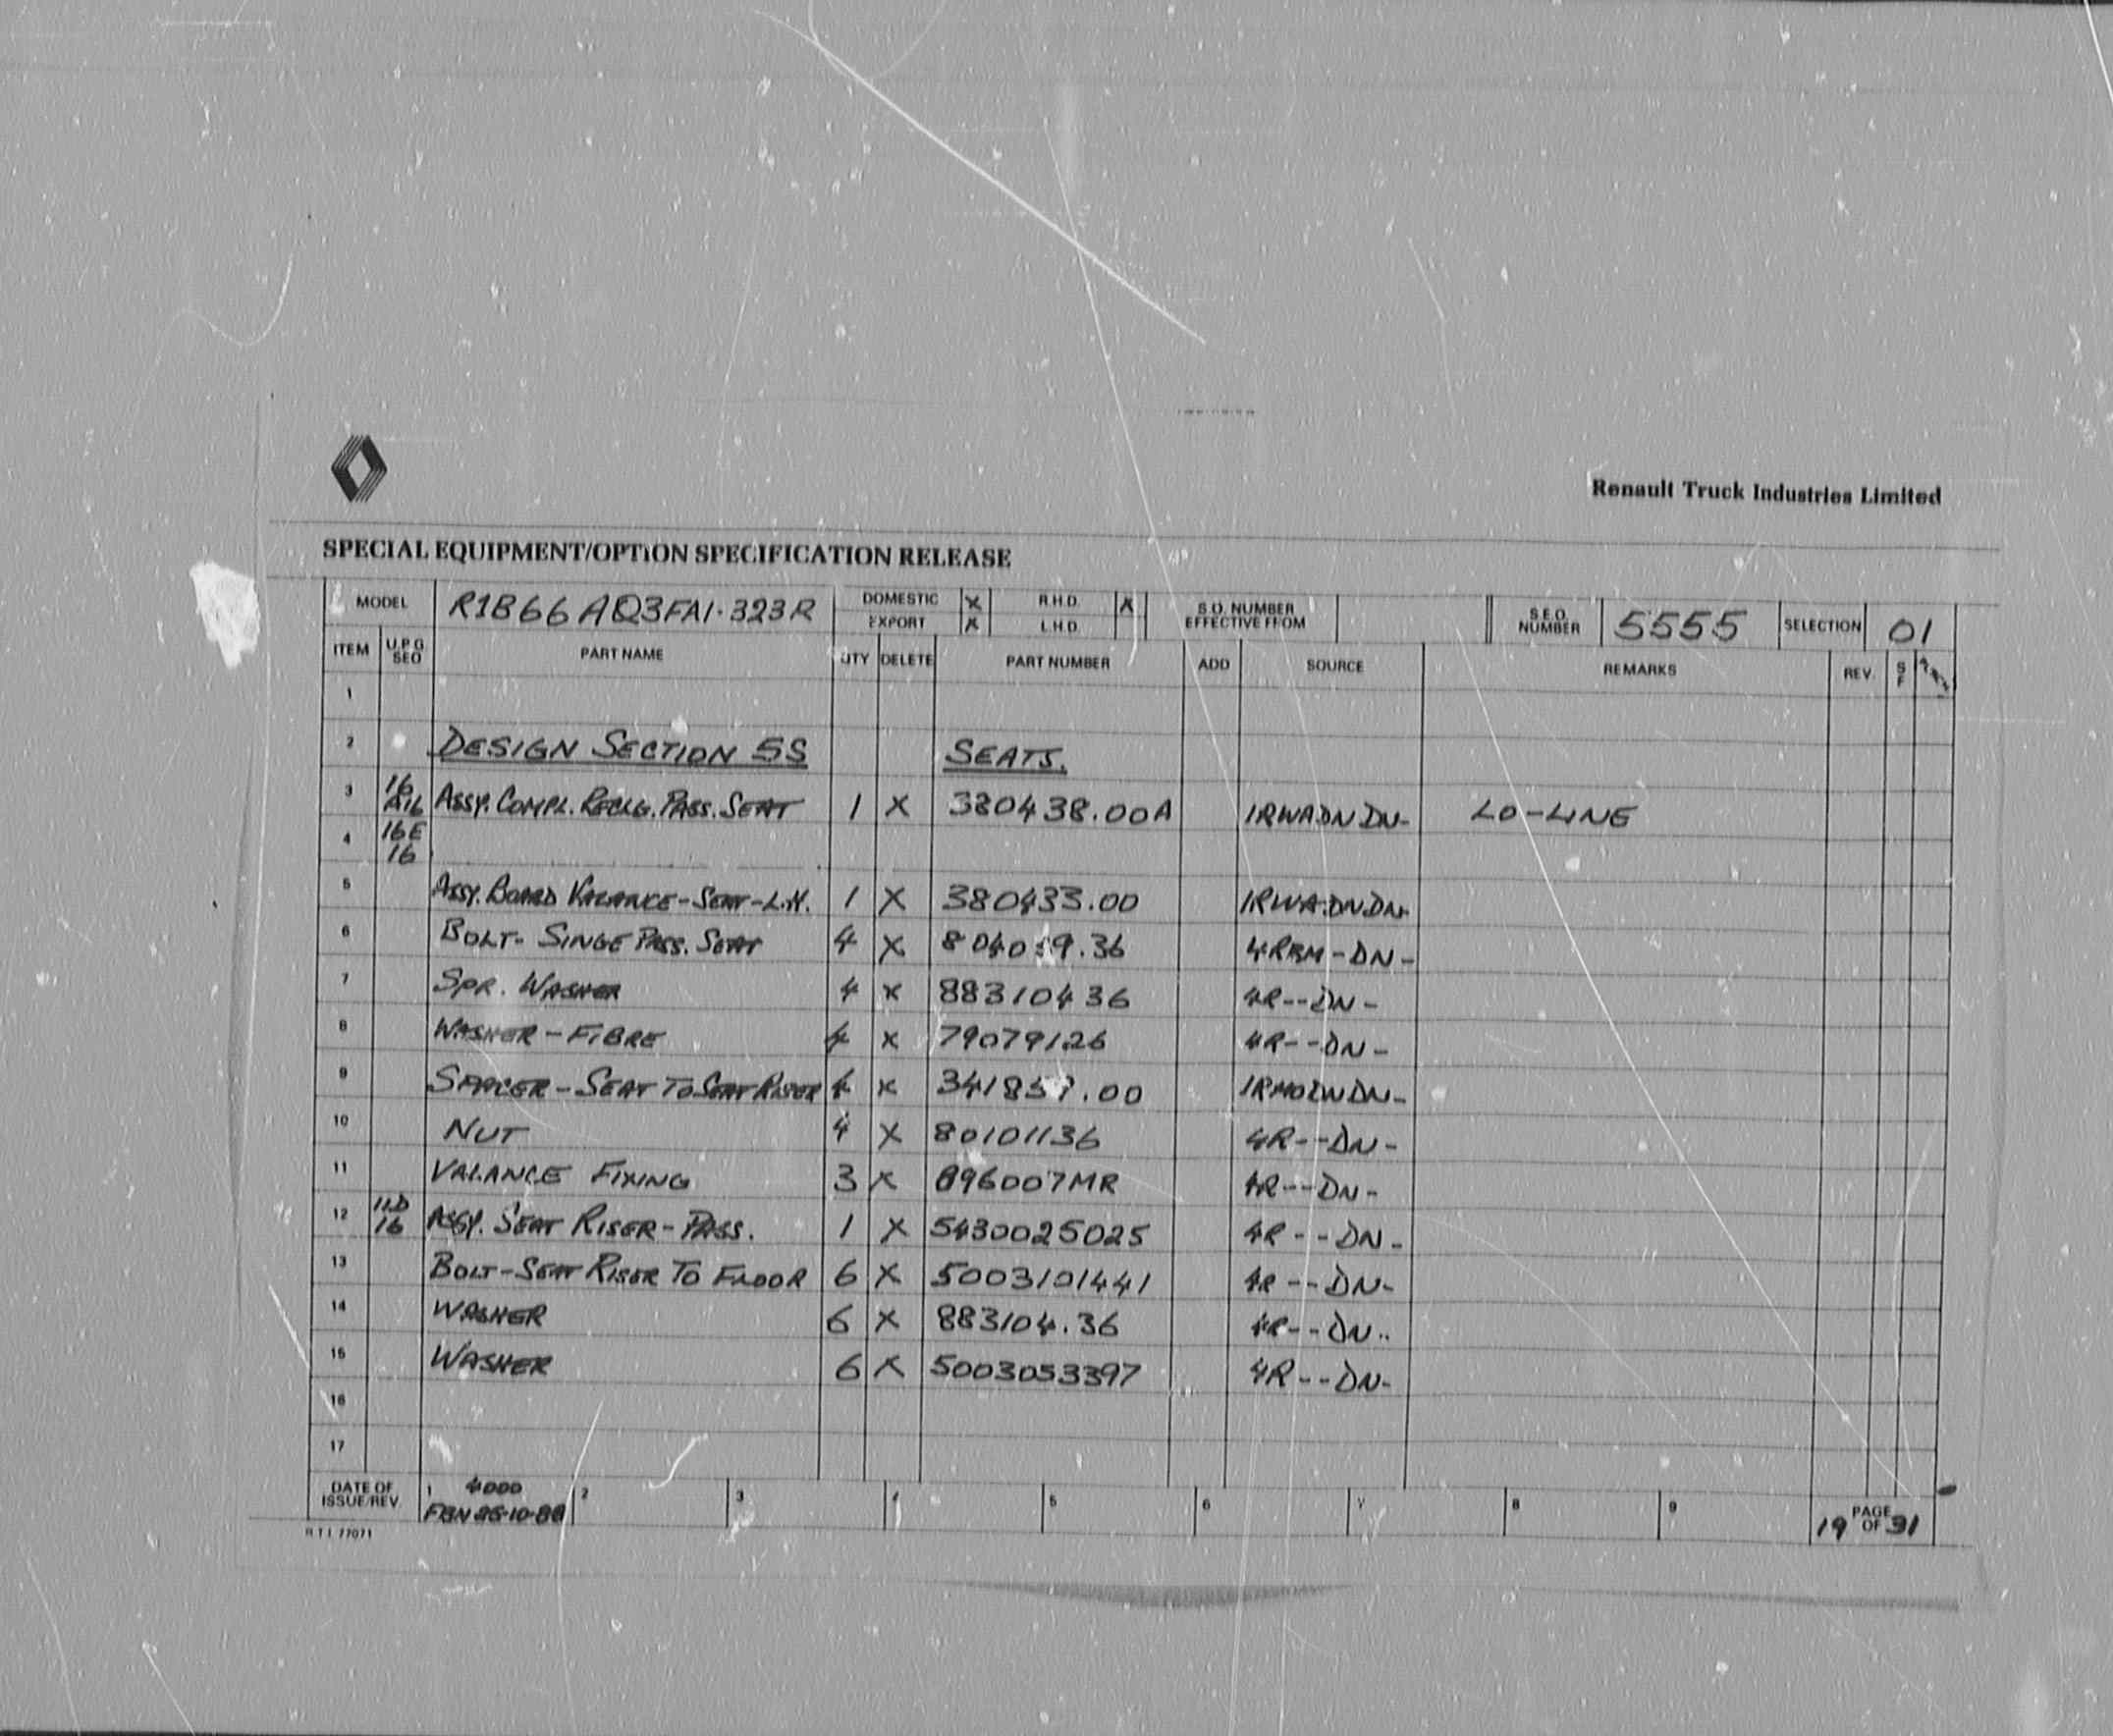 Renault Truck Industries Limited
SPECIAL EQUIPMENT/OPTION SPECIFICATION RELEASE
MODEL R1B66AQ3FA1.323R DOMESTIC X R.H.D. X S.O. NUMBER EFFECTIVE FROM S.E.O. NUMBER 5555 SELECTION 01
EXPORT X L.H.D.
ITEM U.P.G SEO PART NAME QTY DELETE PART NUMBER ADD SOURCE REMARKS REV. S F
1
2 DESIGN SECTION 5S SEATS.
3 16 A16 ASSY. COMPL. RECLG. PASS. SEAT 1 X 380438.00A 1RWADNDN- LO-LINE
4 16E 16
5 ASSY. BOARD VALANCE-SEAT-L.H. 1 X 380433.00 1RWADNDN-
6 BOLT- SINGE PASS. SEAT 4 X 4RBM-DN-
7 SPR. WASHER 4 X 88310436 4R--DN-
8 WASHER-FIBRE 4 X 79079126 4R--DN-
9 SPACER-SEAT TO SEAT RISER 4 X
10 NUT 4 X 80101136 4R--DN-
11 VALANCE FIXING 3 X 896007MR 4R---DN-
12 11D 16 ASSY. SEAT RISER-PASS. 1 X 5430025025 4R---DN-
13 BOLT-SEAT RISER TO FLOOR 6 X 5003101441 4R---DN-
14 WASHER 6 X 883104.36 4R--DN..
15 WASHER 6 X 5003053397 4R--DN-
16
17
DATE OF ISSUE/REV. 1 4000 2 3 4 5 6 7 8 9 19 PAGE OF 31
R.T.I. 77071